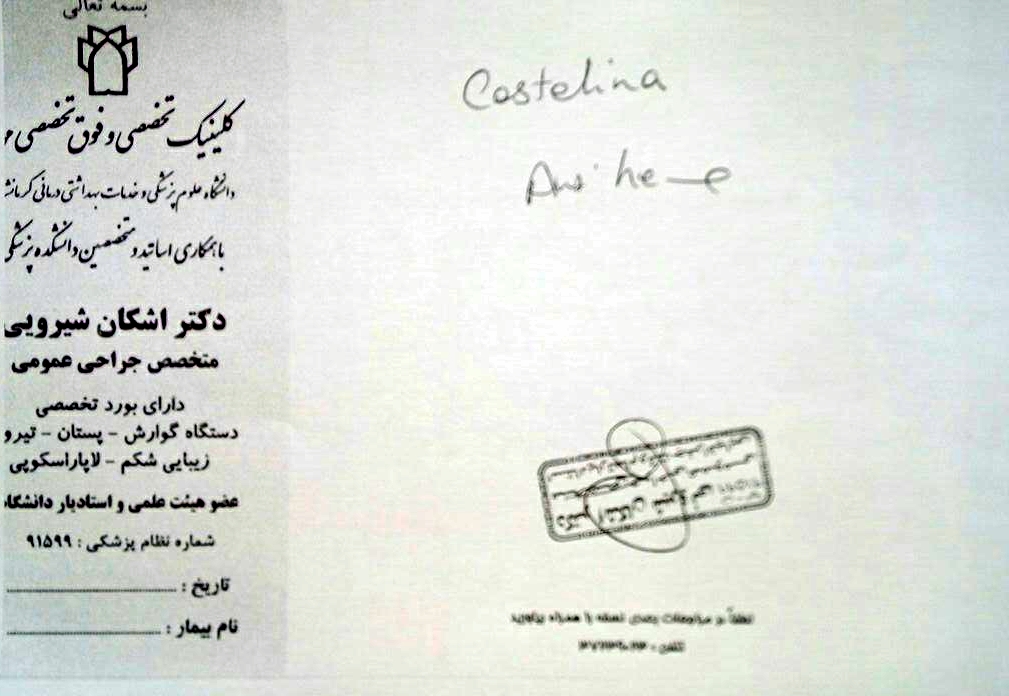 بسمه تعالی
کلینیک تخصصی و فوق تخصصی
دانشگاه علوم پزشکی و خدمات بهداشتی درمانی کرمانش
باهمکاری اساتید و متخصصین دانشکده پزشکی
دکتر اشکان شیرویی
متخصص جراحی عمومی
دارای بورد تخصصی
دستگاه گوارش - پستان - تیرو
زیبایی شکم - لاپاراسکوپی
عضو هیئت علمی و استادیار دانشگاه
شماره نظام پزشکی : ۹۱۵۹۹
تاریخ :
نام بیمار :
Costelina
دکتر اشکان شیرویی
لطفاً در مراجعات بعدی نسخه را همراه بیاورید
تلفن :